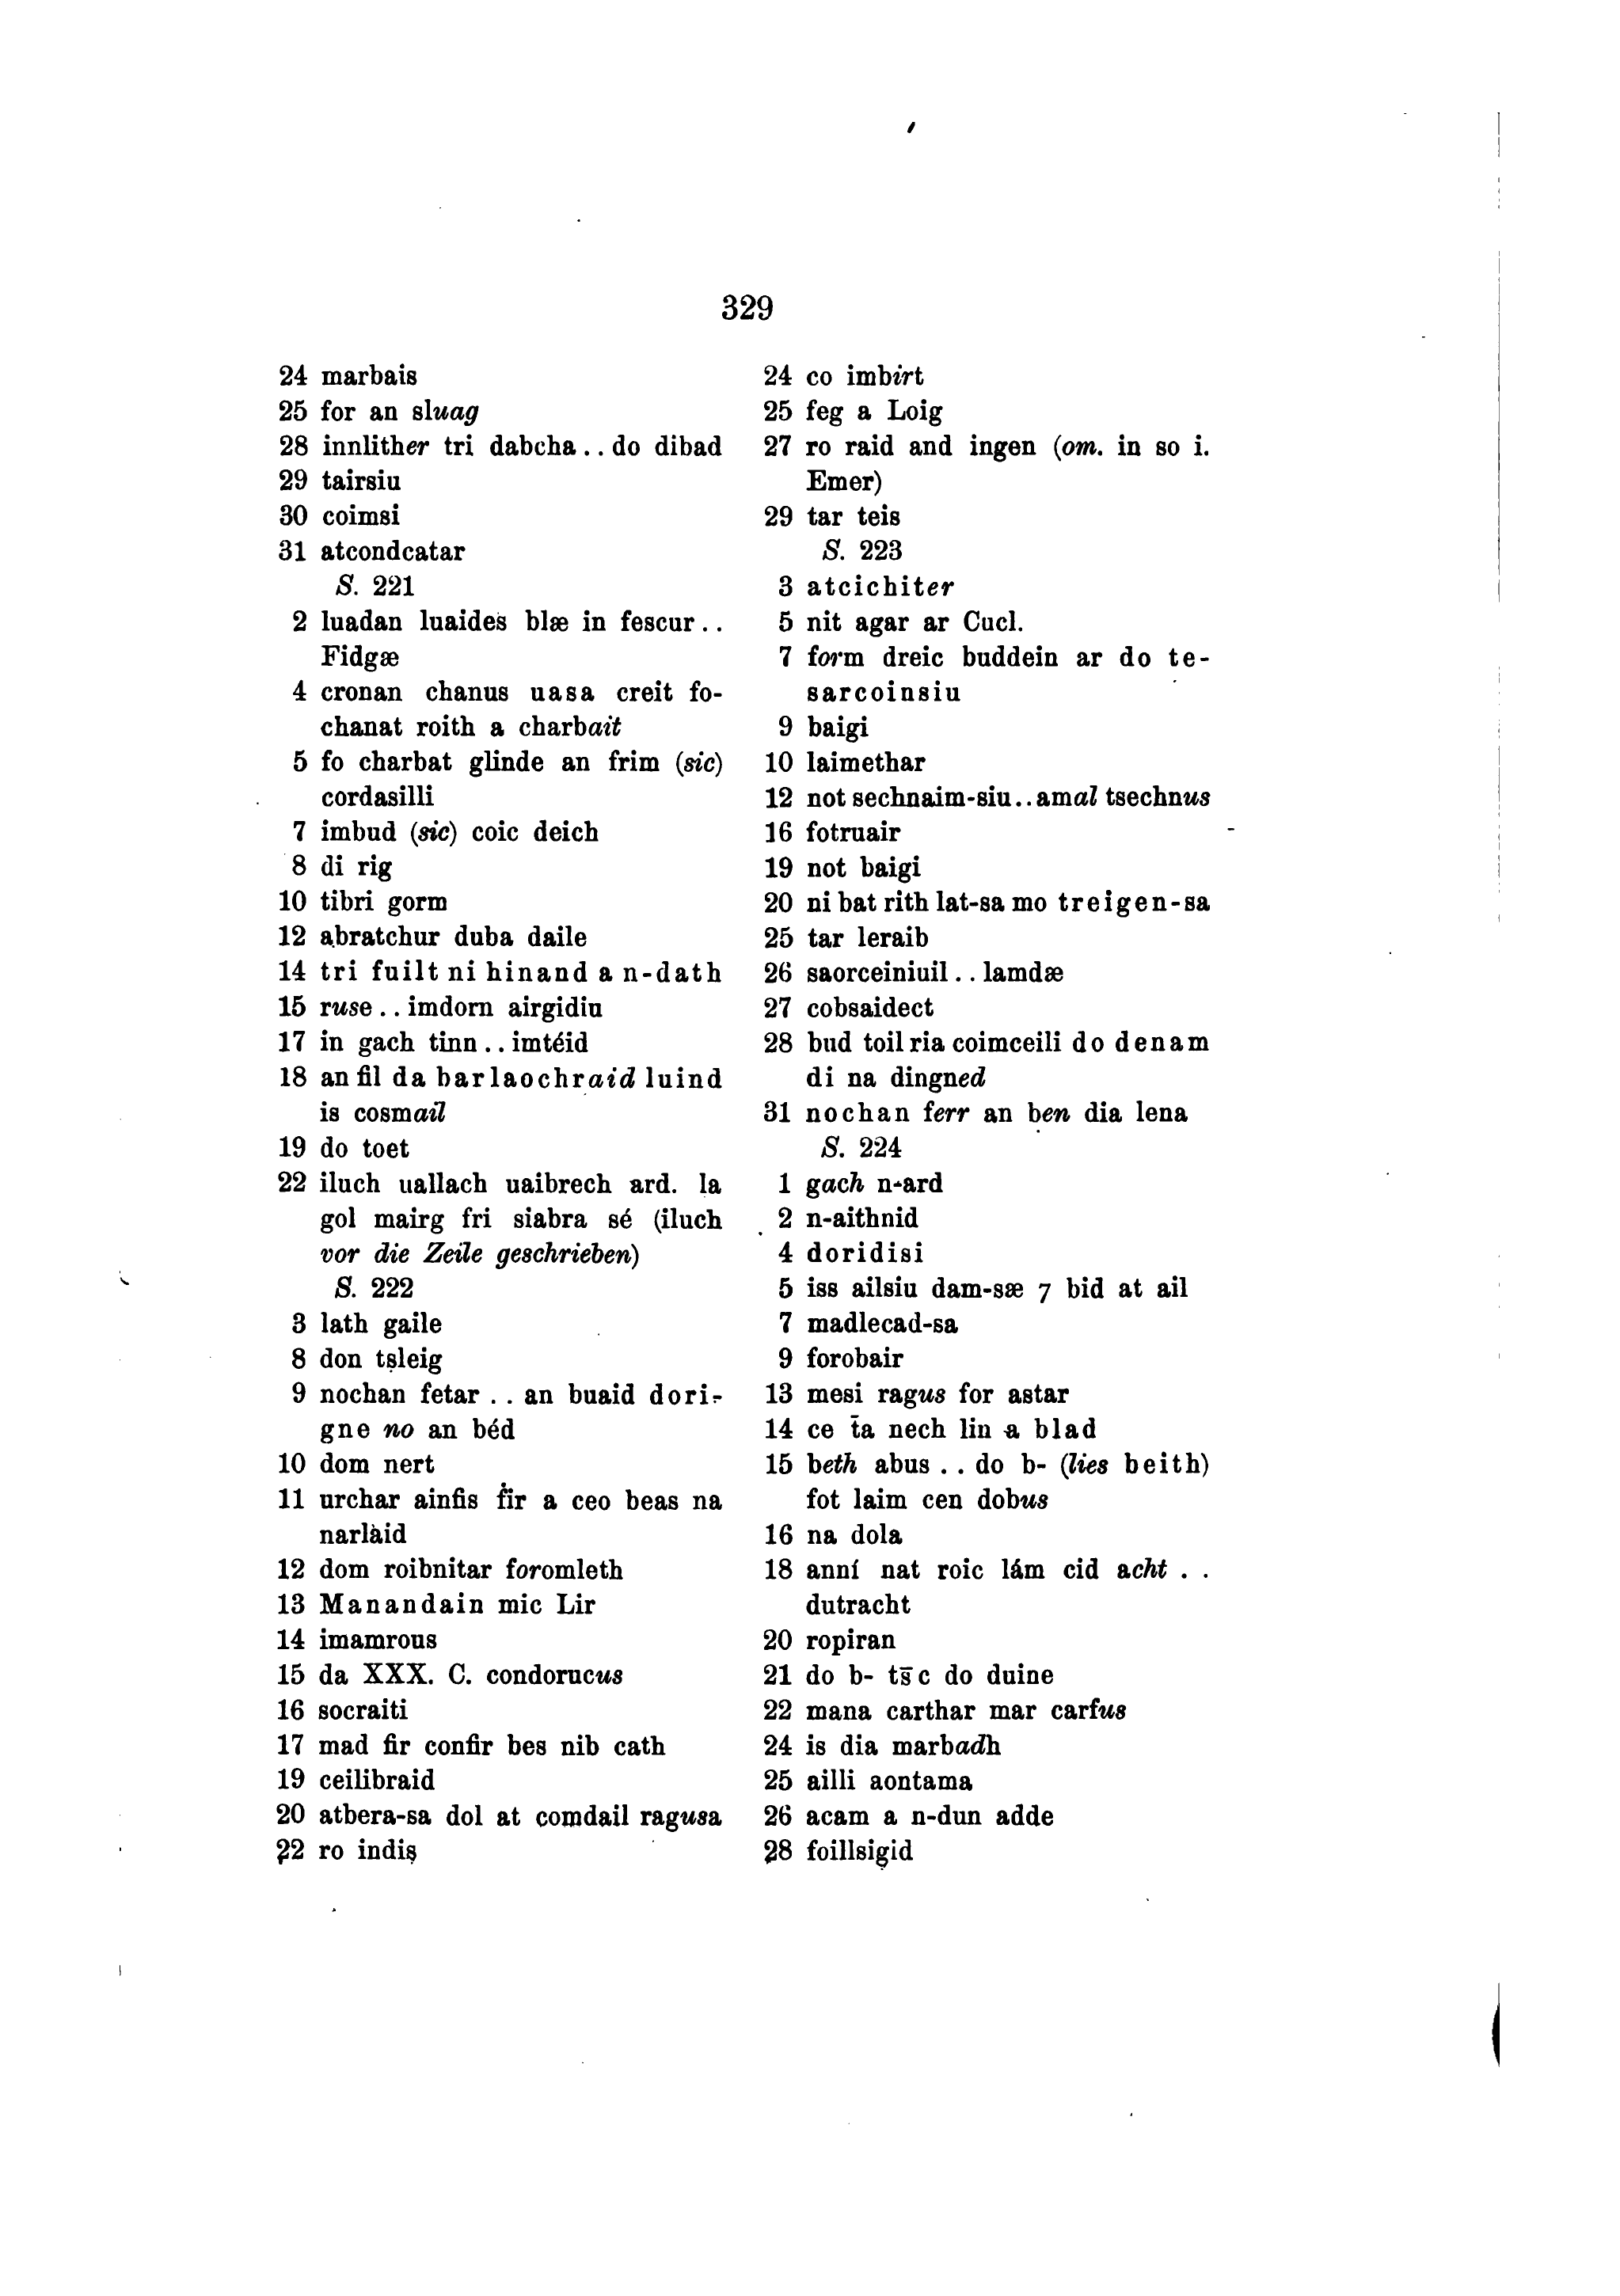 329
24 marbais
25 for an sluag
28 innlither tri dabcha . . do dibad
29 tairsiu
30 coimsi
31 atcondcatar
S. 221
2 luadan luaides blæ in fescur . .
Fidgæ
4 cronan chanus uasa creit fo-
chanat roith a charbait
5 fo charbat glinde an frim (sic)
cordasilli
7 imbud (sic) coic deich
8 di rig
10 tibri gorm
12 abratchur duba daile
14 tri fuilt ni hinand a n-dath
15 ruse . . imdorn airgidiu
17 in gach tinn . . imtéid
18 an fil da bar laochraid luind
is cosmail
19 do toet
22 iluch uallach uaibrech ard. la
gol mairg fri siabra sé (iluch
vor die Zeile geschrieben)
S. 222
3 lath gaile
8 don tṣleig
9 nochan fetar . . an buaid dori-
gne no an béd
10 dom nert
11 urchar ainfis ḟir a ceo beas na
narlàid
12 dom roibnitar foromleth
13 Manandain mic Lir
14 imamrous
15 da XXX. C. condorucus
16 socraiti
17 mad fir confir bes nib cath
19 ceilibraid
20 atbera-sa dol at comdail ragusa
22 ro indiṣ
24 co imbirt
25 feg a Loig
27 ro raid and ingen (om. in so i.
Emer)
29 tar teis
S. 223
3 atcichiter
5 nit agar ar Cucl.
7 form dreic buddein ar do te-
sarcoinsiu
9 baigi
10 laimethar
12 not sechnaim-siu . . amal tsechnus
16 fotruair
19 not baigi
20 ni bat rith lat-sa mo treigen-sa
25 tar leraib
26 saorceiniuil . . lamdæ
27 cobsaidect
28 bud toil ria coimceili do denam
di na dingned
31 nochan ferr an ben dia lena
S. 224
1 gach n-ard
2 n-aithnid
4 doridisi
5 iss ailsiu dam-sæ 7 bid at ail
7 madlecad-sa
9 forobair
13 mesi ragus for astar
14 ce t̄a nech lin a blad
15 beth abus . . do b- (lies beith)
fot laim cen dobus
16 na dola
18 anní nat roic lám cid acht . .
dutracht
20 ropiran
21 do b- ts̄c do duine
22 mana carthar mar carfus
24 is dia marbadh
25 ailli aontama
26 acam a n-dun adde
28 foillsigid